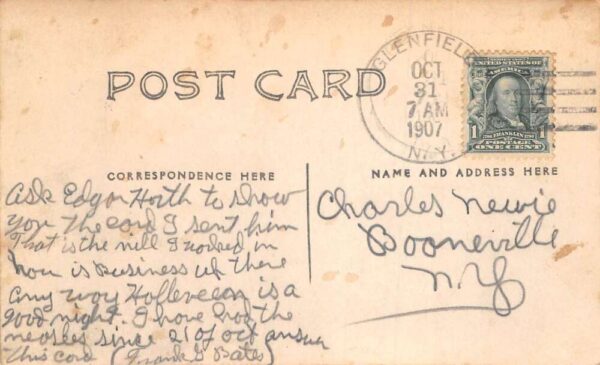 POST CARD
GLENFIELD
OCT
31
7 AM
1907
N.Y.
UNITED STATES OF
AMERICA
1 FRANKLIN 1
POSTAGE
ONE CENT
CORRESPONDENCE HERE
Ask Edgar Horth to show
you the card I sent him
That is the mill I worked in
how is business up there
any way Holleween is a
good night. I have had the
measles since 21 of oct answer
this card (Frank G Bates)
NAME AND ADDRESS HERE
Charles Newie
Booneville
N.Y